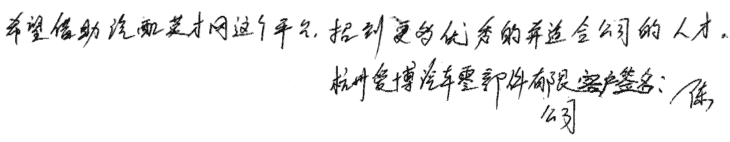 希望借助汽配英才网这个平台,招到更为优秀的并适合公司的人才。
杭州爱博汽车零部件有限客户签名:陈
公司